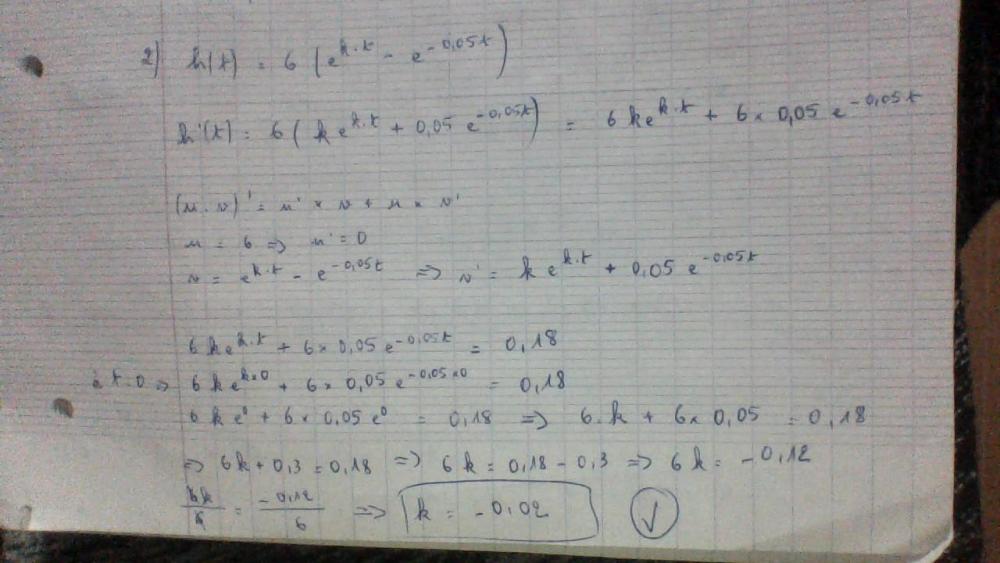 2) h(t) = 6 (e^{k.t} - e^{-0,05t})
h'(t) = 6 ( k e^{k.t} + 0,05 e^{-0,05t}) = 6 k e^{k.t} + 6 × 0,05 e^{-0,05t}
(u.v)' = u' × v + u × v'
u = 6 => u' = 0
v = e^{k.t} - e^{-0,05t} => v' = k e^{k.t} + 0,05 e^{-0,05t}
6 k e^{k.t} + 6 × 0,05 e^{-0,05t} = 0,18
à t=0 => 6 k e^{k×0} + 6 × 0,05 e^{-0,05×0} = 0,18
6 k e^0 + 6 × 0,05 e^0 = 0,18 => 6.k + 6 × 0,05 = 0,18
=> 6k + 0,3 = 0,18 => 6k = 0,18 - 0,3 => 6k = -0,12
6k/6 = -0,12/6 => k = -0,02 ✓